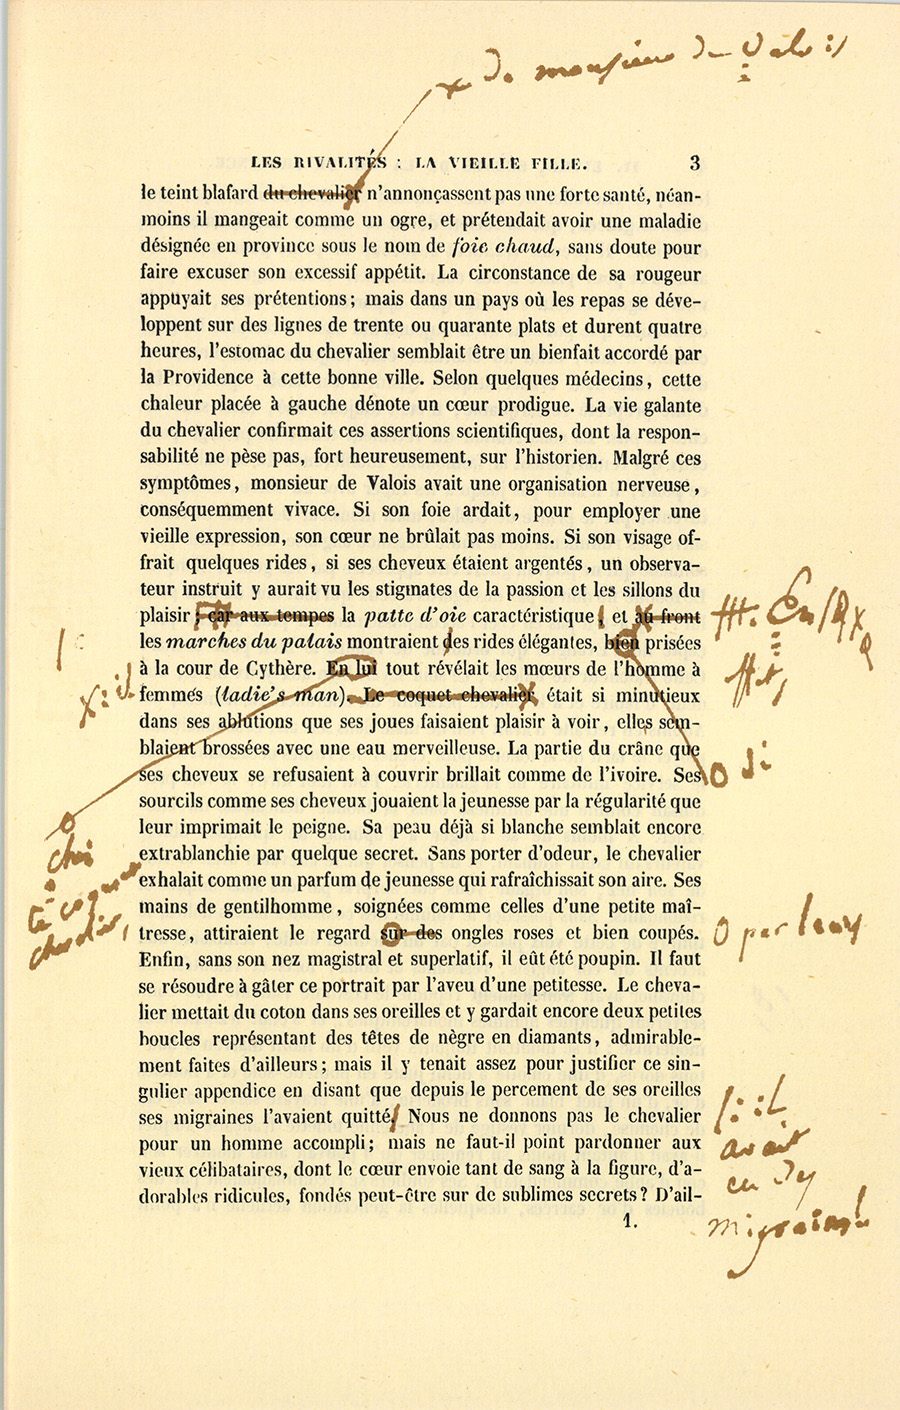 x de monsieur de Valois/
LES RIVALITÉS : LA VIEILLE FILLE. 3
le teint blafard du chevalier n’annonçassent pas une forte santé, néan-
moins il mangeait comme un ogre, et prétendait avoir une maladie
désignée en province sous le nom de foie chaud, sans doute pour
faire excuser son excessif appétit. La circonstance de sa rougeur
appuyait ses prétentions ; mais dans un pays où les repas se déve-
loppent sur des lignes de trente ou quarante plats et durent quatre
heures, l’estomac du chevalier semblait être un bienfait accordé par
la Providence à cette bonne ville. Selon quelques médecins, cette
chaleur placée à gauche dénote un cœur prodigue. La vie galante
du chevalier confirmait ces assertions scientifiques, dont la respon-
sabilité ne pèse pas, fort heureusement, sur l’historien. Malgré ces
symptômes, monsieur de Valois avait une organisation nerveuse,
conséquemment vivace. Si son foie ardait, pour employer une
vieille expression, son cœur ne brûlait pas moins. Si son visage of-
frait quelques rides, si ses cheveux étaient argentés, un observa-
teur instruit y aurait vu les stigmates de la passion et les sillons du
plaisir ; car aux tempes la patte d’oie caractéristique, et au front
les marches du palais montraient des rides élégantes, bien prisées
à la cour de Cythère. En lui tout révélait les mœurs de l’homme à
femmes (ladie’s man). Le coquet chevalier était si minutieux
dans ses ablutions que ses joues faisaient plaisir à voir, elles sem-
blaient brossées avec une eau merveilleuse. La partie du crâne que
ses cheveux se refusaient à couvrir brillait comme de l’ivoire. Ses
O si
sourcils comme ses cheveux jouaient la jeunesse par la régularité que
leur imprimait le peigne. Sa peau déjà si blanche semblait encore
extrablanchie par quelque secret. Sans porter d’odeur, le chevalier
exhalait comme un parfum de jeunesse qui rafraîchissait son aire. Ses
chez
ce coquet
chevalier,
mains de gentilhomme, soignées comme celles d’une petite maî-
tresse, attiraient le regard sur des ongles roses et bien coupés.
O par leurs
Enfin, sans son nez magistral et superlatif, il eût été poupin. Il faut
se résoudre à gâter ce portrait par l’aveu d’une petitesse. Le cheva-
lier mettait du coton dans ses oreilles et y gardait encore deux petites
boucles représentant des têtes de nègre en diamants, admirable-
ment faites d’ailleurs ; mais il y tenait assez pour justifier ce sin-
gulier appendice en disant que depuis le percement de ses oreilles
ses migraines l’avaient quitté. Nous ne donnons pas le chevalier
pour un homme accompli ; mais ne faut-il point pardonner aux
vieux célibataires, dont le cœur envoie tant de sang à la figure, d’a-
dorables ridicules, fondés peut-être sur de sublimes secrets ? D’ail-
: il
avait
eu des
migraines!
1.